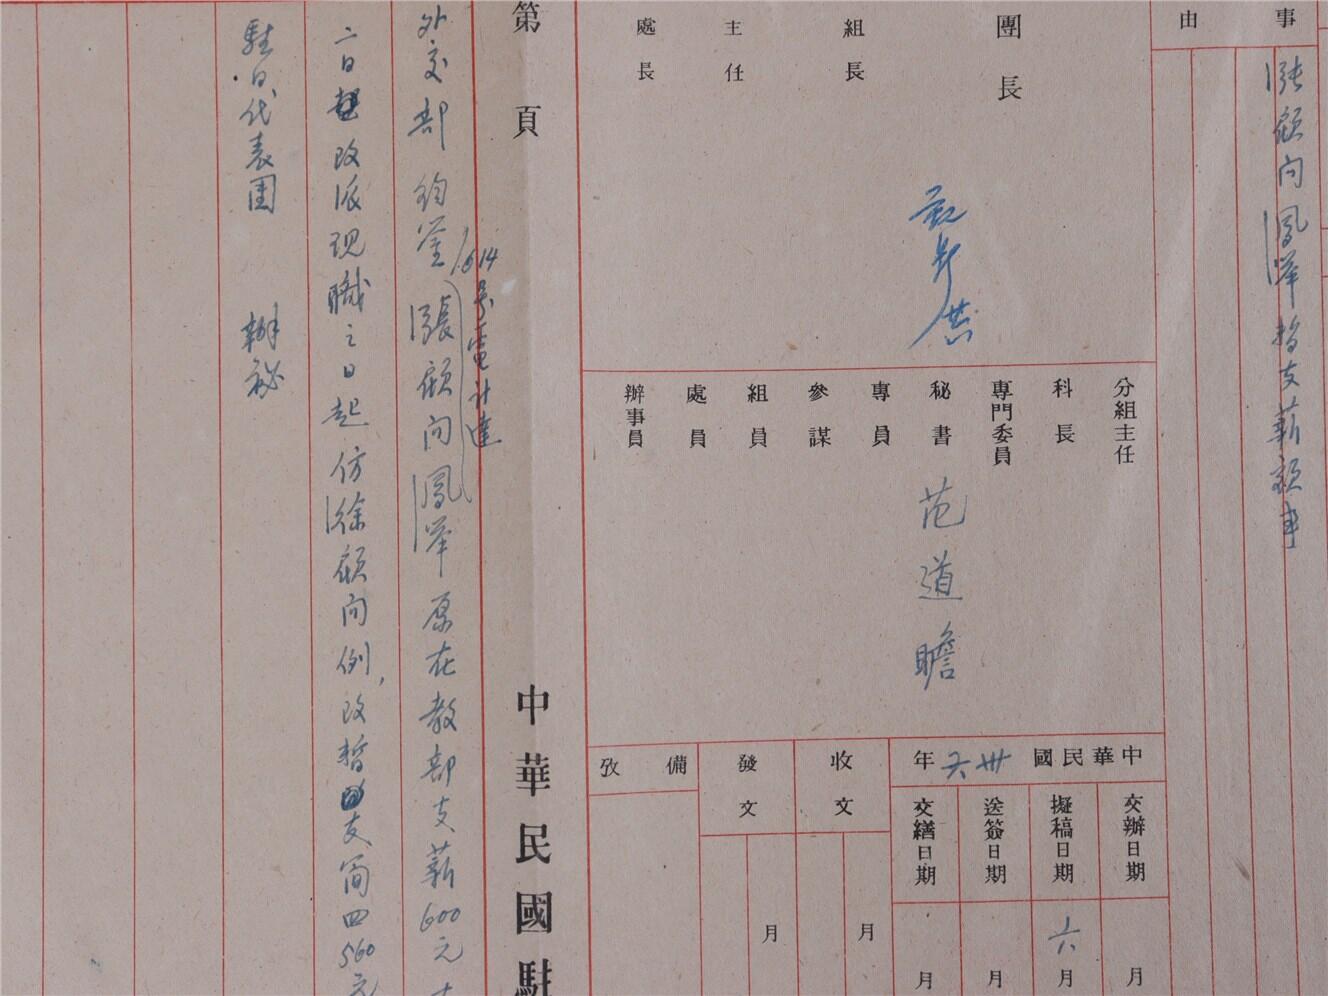 事由
張顧問鳳舉暫支薪額事
團長
組長
主任
處長
分組主任
科長
專門委員
秘書 范道瞻
專員
參謀
組員
處員
辦事員
中華民國卅六年
交辦日期 月
擬稿日期 六月
送簽日期 月
交繕日期 月
收文 月
發文 月
備攷
第 頁
中華民國駐
614號電計達
外交部鈞鑒張顧問鳳舉原在教部支薪600元
二日起改派現職之日起仿徐顧問例,改暫支簡四560元
駐日代表團 辦秘